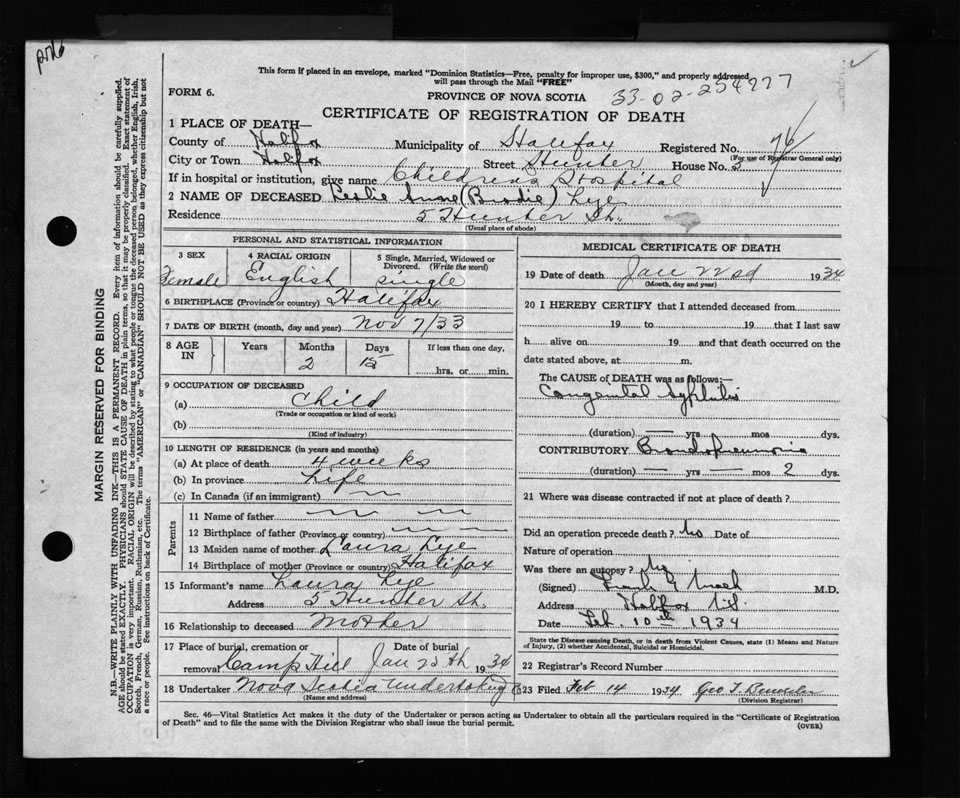 This form if placed in an envelope, marked "Dominion Statistics—Free, penalty for improper use, $300," and properly addressed
will pass through the Mail "FREE"
FORM 6.
PROVINCE OF NOVA SCOTIA
33-02-254977
CERTIFICATE OF REGISTRATION OF DEATH
1 PLACE OF DEATH—
County of Halfox Municipality of Halifax Registered No. 76
(For use of Registrar General only)
City or Town Halfox Street Hunter House No. 5
If in hospital or institution, give name Childrens Hospital
2 NAME OF DECEASED Leslie Anne (Brodie) Lye
Residence 5 Hunter St.
(Usual place of abode)
PERSONAL AND STATISTICAL INFORMATION
3 SEX 4 RACIAL ORIGIN 5 Single, Married, Widowed or Divorced. (Write the word)
Female English single
6 BIRTHPLACE (Province or country) Halifax
7 DATE OF BIRTH (month, day and year) Nov 7/33
8 AGE IN Years Months Days If less than one day,
2 15 hrs. or min.
9 OCCUPATION OF DECEASED
(a) Child
(Trade or occupation or kind of work)
(b)
(Kind of industry)
10 LENGTH OF RESIDENCE (in years and months)
(a) At place of death 4 weeks
(b) In province Life
(c) In Canada (if an immigrant)
Parents
11 Name of father
12 Birthplace of father (Province or country)
13 Maiden name of mother Laura Lye
14 Birthplace of mother (Province or country) Halifax
15 Informant's name Laura Lye
Address 5 Hunter St.
16 Relationship to deceased Mother
17 Place of burial, cremation or removal Date of burial
Camp Hill Jan 25th 1934
18 Undertaker Nova Scotia Undertaking Co
(Name and address)
MEDICAL CERTIFICATE OF DEATH
19 Date of death Jan 22nd 1934
(Month, day and year)
20 I HEREBY CERTIFY that I attended deceased from
19 to 19 that I last saw
h alive on 19 and that death occurred on the
date stated above, at m.
The CAUSE OF DEATH was as follows:—
Congenital Syphilis
(duration) — yrs — mos — dys.
CONTRIBUTORY Bronchopneumonia
(duration) — yrs — mos 2 dys.
21 Where was disease contracted if not at place of death?
Did an operation precede death? No Date of
Nature of operation
Was there an autopsy? No
(Signed) Frank G Mack M.D.
Address Halifax N.S.
Date Feb. 10th 1934
State the Disease causing Death, or in death from Violent Causes, state (1) Means and Nature
of Injury, (2) whether Accidental, Suicidal or Homicidal.
22 Registrar's Record Number
23 Filed Feb 14 1934 Geo T.
(Division Registrar)
Sec. 46—Vital Statistics Act makes it the duty of the Undertaker or person acting as Undertaker to obtain all the particulars required in the "Certificate of Registration
of Death" and to file the same with the Division Registrar who shall issue the burial permit.
(OVER)
MARGIN RESERVED FOR BINDING
N.B.—WRITE PLAINLY WITH UNFADING INK—THIS IS A PERMANENT RECORD. Every item of information should be carefully supplied.
AGE should be stated EXACTLY. PHYSICIANS should STATE CAUSE OF DEATH in plain terms, so that it may be properly classified. Exact statement of
OCCUPATION is very important. RACIAL ORIGIN will be described by stating to what people or tongue the deceased person belonged, whether English, Irish,
Scotch, French, German, Russian, Ruthenian, etc. The terms "AMERICAN" or "CANADIAN" SHOULD NOT BE USED as they express citizenship but not
a race or people. See instructions on back of Certificate.